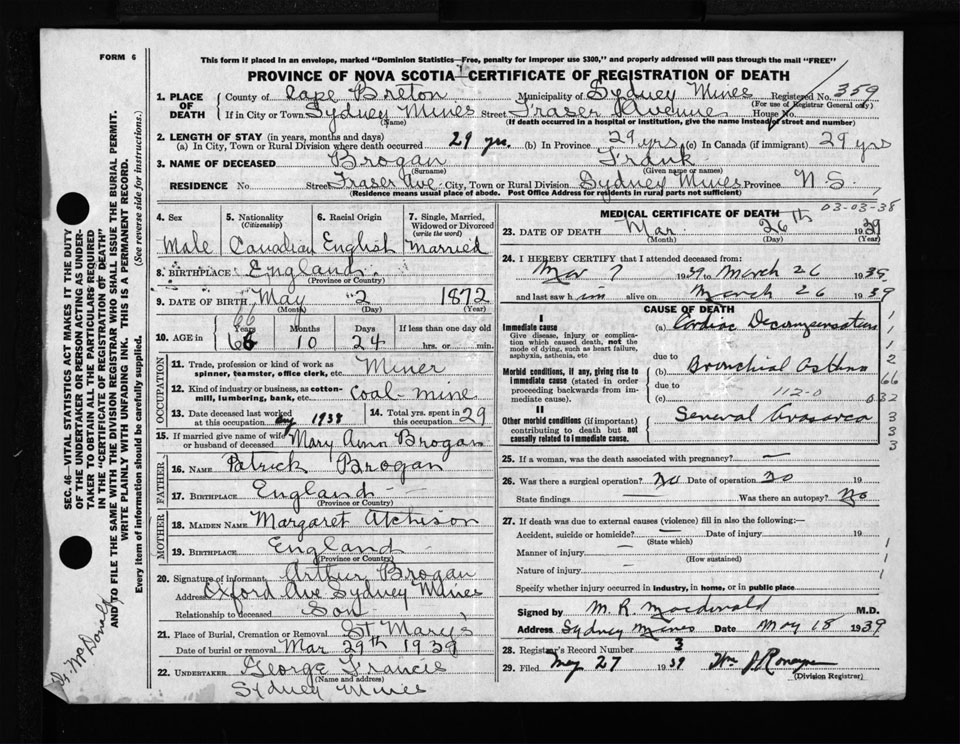 FORM 6
This form if placed in an envelope, marked "Dominion Statistics—Free, penalty for improper use $300," and properly addressed will pass through the mail "FREE"
PROVINCE OF NOVA SCOTIA CERTIFICATE OF REGISTRATION OF DEATH
1. PLACE OF DEATH County of Cape Breton Municipality of Sydney Mines Registered No. 359
(For use of Registrar General only)
If in City or Town Sydney Mines Street Fraser Avenue House No.
(Name) (If death occurred in a hospital or institution, give the name instead of street and number)
2. LENGTH OF STAY (in years, months and days)
(a) In City, Town or Rural Division where death occurred 29 yrs. (b) In Province 29 yrs (c) In Canada (if immigrant) 29 yrs
3. NAME OF DECEASED Brogan Frank
(Surname) (Given name or names)
RESIDENCE No. Street Fraser Ave. City, Town or Rural Division Sydney Mines Province N.S.
(Residence means usual place of abode. Post Office Address for residents in rural parts not sufficient)
4. Sex 5. Nationality (Citizenship) 6. Racial Origin 7. Single, Married, Widowed or Divorced (write the word)
Male Canadian English Married
8. BIRTHPLACE England
(Province or Country)
9. DATE OF BIRTH May 2 1872
(Month) (Day) (Year)
66
10. AGE in Years Months Days If less than one day old
66 10 24 hrs. or min.
OCCUPATION
11. Trade, profession or kind of work as spinner, teamster, office clerk, etc. Miner
12. Kind of industry or business, as cotton-mill, lumbering, bank, etc. Coal mine
13. Date deceased last worked at this occupation 1938 14. Total yrs. spent in 29
15. If married give name of wife or husband of deceased Mary Ann Brogan
FATHER
16. NAME Patrick Brogan
17. BIRTHPLACE England
(Province or Country)
MOTHER
18. MAIDEN NAME Margaret Atchison
19. BIRTHPLACE England
(Province or Country)
20. Signature of informant Arthur Brogan
Address Oxford Ave Sydney Mines
Relationship to deceased Son
21. Place of Burial, Cremation or Removal St Mary's
Date of burial or removal Mar 29th 1939
22. UNDERTAKER George Francis
(Name and address)
Sydney Mines
MEDICAL CERTIFICATE OF DEATH
03-03-38
23. DATE OF DEATH Mar 26th 1939
(Month) (Day) (Year)
24. I HEREBY CERTIFY that I attended deceased from:
Mar 7 1939 to March 26 1939
and last saw him alive on March 26 1939
CAUSE OF DEATH
I
Immediate cause (a) Cardiac Decompensation
Give disease, injury or complication which caused death, not the mode of dying, such as heart failure, asphyxia, asthenia, etc
due to
Morbid conditions, if any, giving rise to immediate cause (stated in order proceeding backwards from immediate cause). (b) Bronchial Asthma
due to
(c) 112-0
II
Other morbid conditions (if important) contributing to death but not causally related to immediate cause. General Anasarca
25. If a woman, was the death associated with pregnancy? —
26. Was there a surgical operation? No Date of operation No 19
State findings — Was there an autopsy? No
27. If death was due to external causes (violence) fill in also the following:—
Accident, suicide or homicide? — Date of injury 19
(State which)
Manner of injury —
(How sustained)
Nature of injury —
Specify whether injury occurred in Industry, in home, or in public place
Signed by M. R. Macdonald M.D.
Address Sydney Mines Date May 18 1939
28. Registrar's Record Number 3
29. Filed May 27 1939 Wm J. Ronayne
(Division Registrar)
SEC. 46—VITAL STATISTICS ACT MAKES IT THE DUTY
OF THE UNDERTAKER OR PERSON ACTING AS UNDER-
TAKER TO OBTAIN ALL THE PARTICULARS REQUIRED
IN THE "CERTIFICATE OF REGISTRATION OF DEATH"
AND TO FILE THE SAME WITH THE DIVISION REGISTRAR WHO SHALL ISSUE THE BURIAL PERMIT.
WRITE PLAINLY WITH UNFADING INK. THIS IS A PERMANENT RECORD.
Every item of information should be carefully supplied. (See reverse side for instructions.)
Dr McDonald